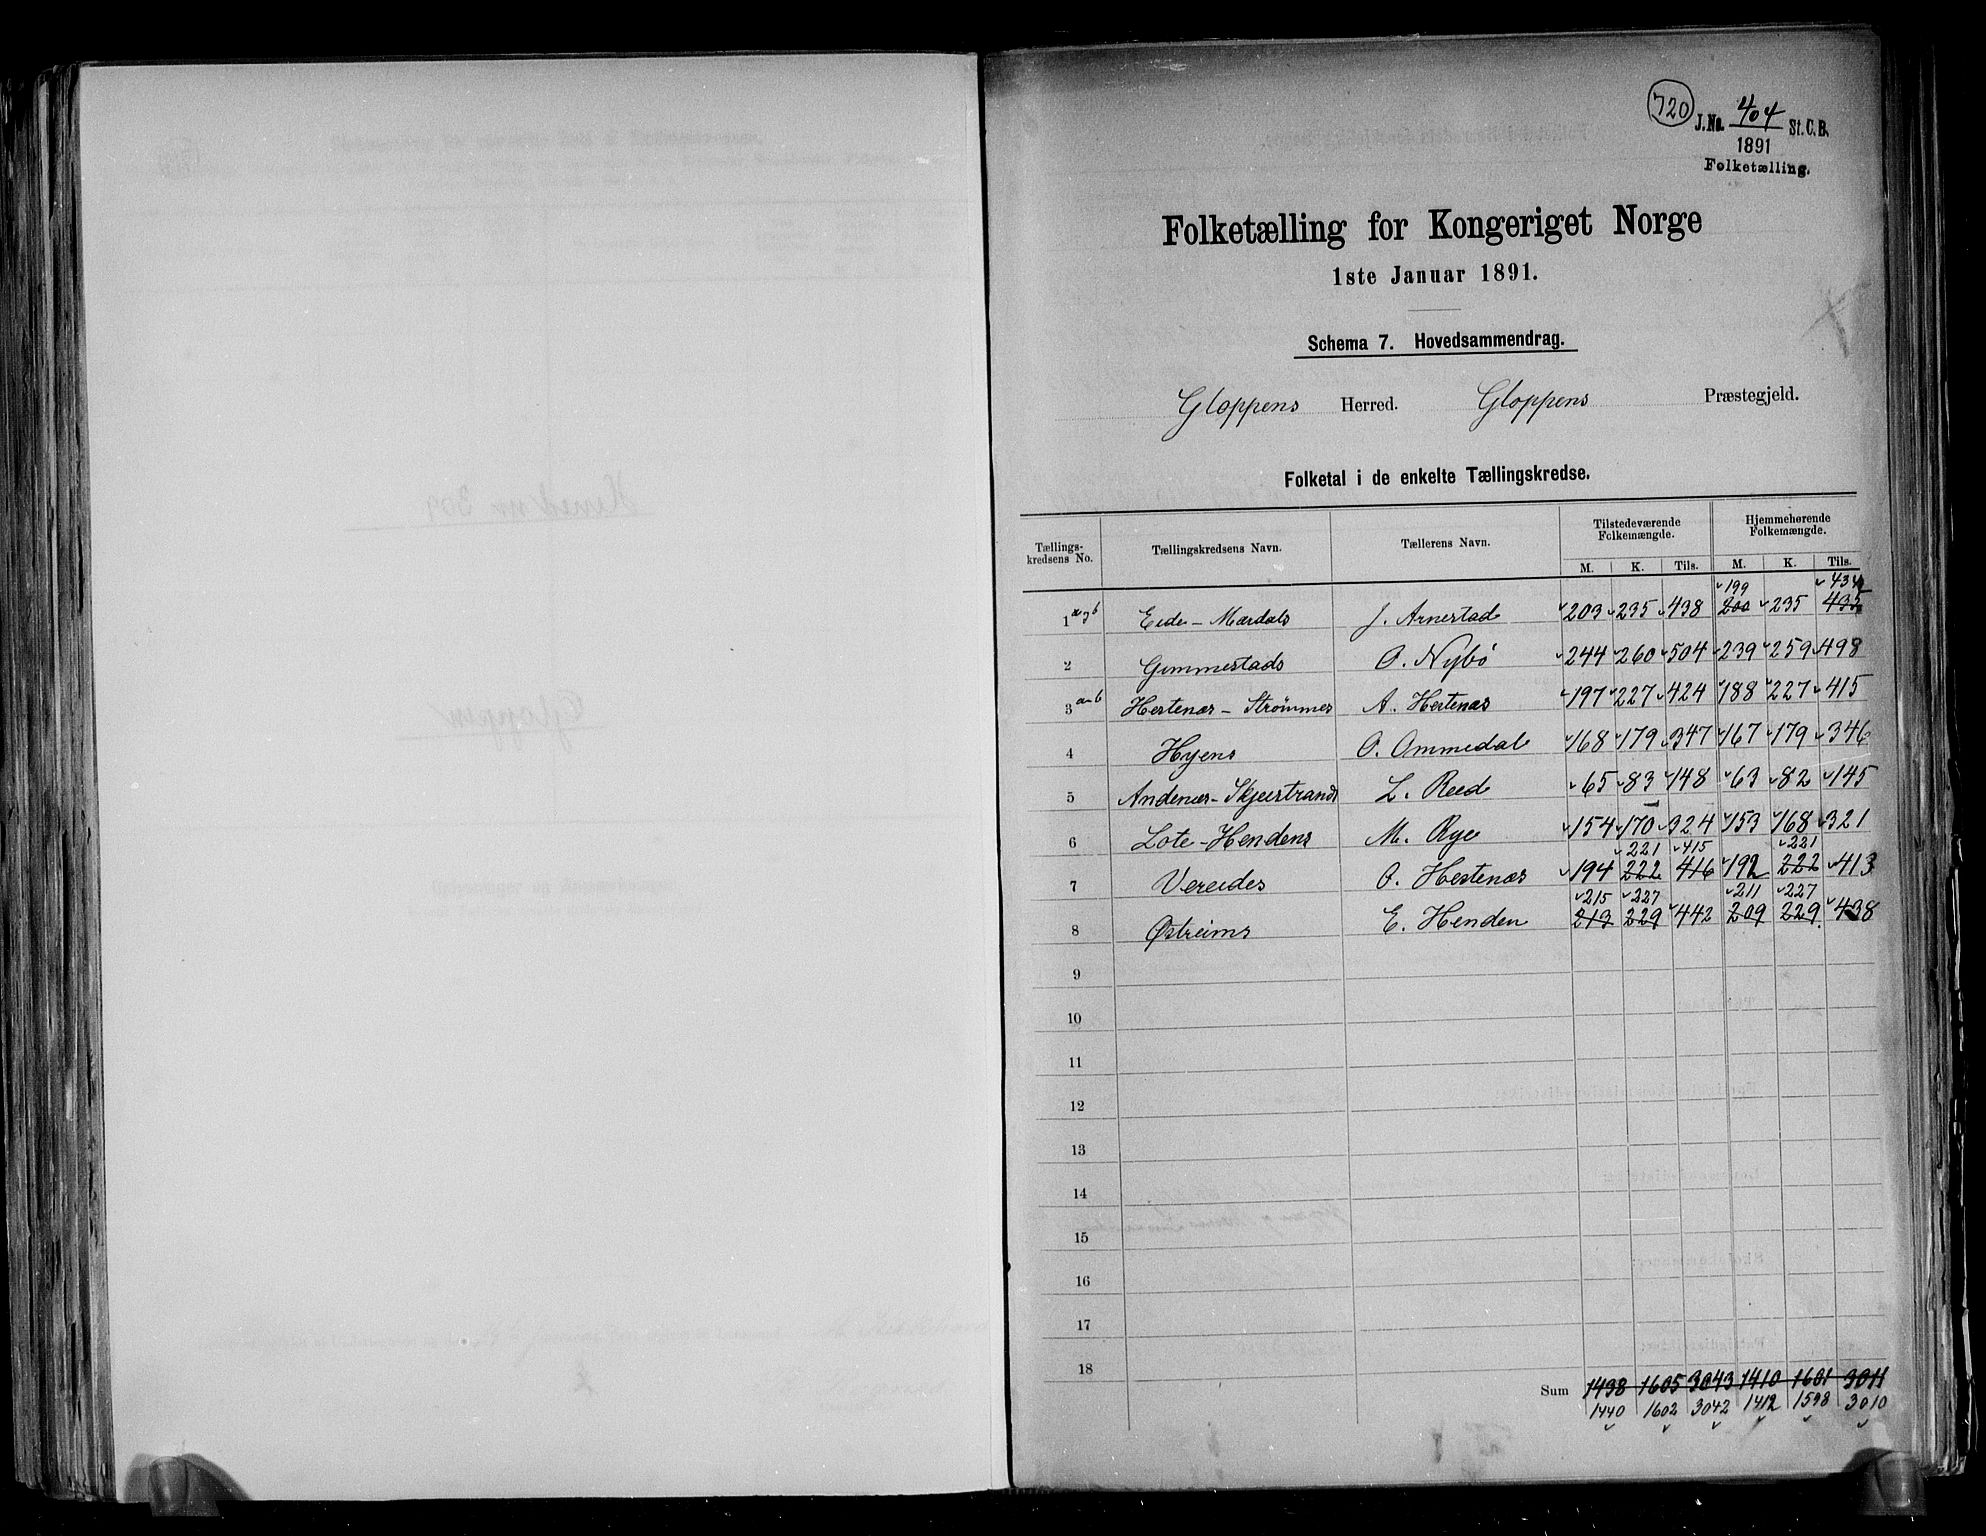 720
J.No. 404 St.C.B.
1891
Folketælling.
Folketælling for Kongeriget Norge
1ste Januar 1891.
Schema 7. Hovedsammendrag.
Gloppens Herred. Gloppens Præstegjeld.
Folketal i de enkelte Tællingskredse.
Tællings-kredsens No. Tællingskredsens Navn. Tællerens Navn. Tilstedeværende Folkemængde. Hjemmehørende Folkemængde.
M. K. Tils. M. K. Tils.
199 434
1 a og b Eide - Mærdals J. Arnestad 203 235 438 200 235 435
2 Gimmestads O. Nybø 244 260 504 239 259 498
3 a-b Hestenæs - Strømmes A. Hestenæs 197 227 424 188 227 415
4 Hyens O. Ommedal 168 179 347 167 179 346
5 Andenæs - Skjæistrands L. Reed 65 83 148 63 82 145
6 Lote - Hendens M. Rye 154 170 324 153 168 321
221 415 221
7 Vereides O. Hestenæs 194 222 416 192 222 413
215 227 211 227
8 Østreims E. Henden 213 229 442 209 229 438
9
10
11
12
13
14
15
16
17
18
Sum 1438 1605 3043 1410 1601 3011
1440 1602 3042 1412 1598 3010